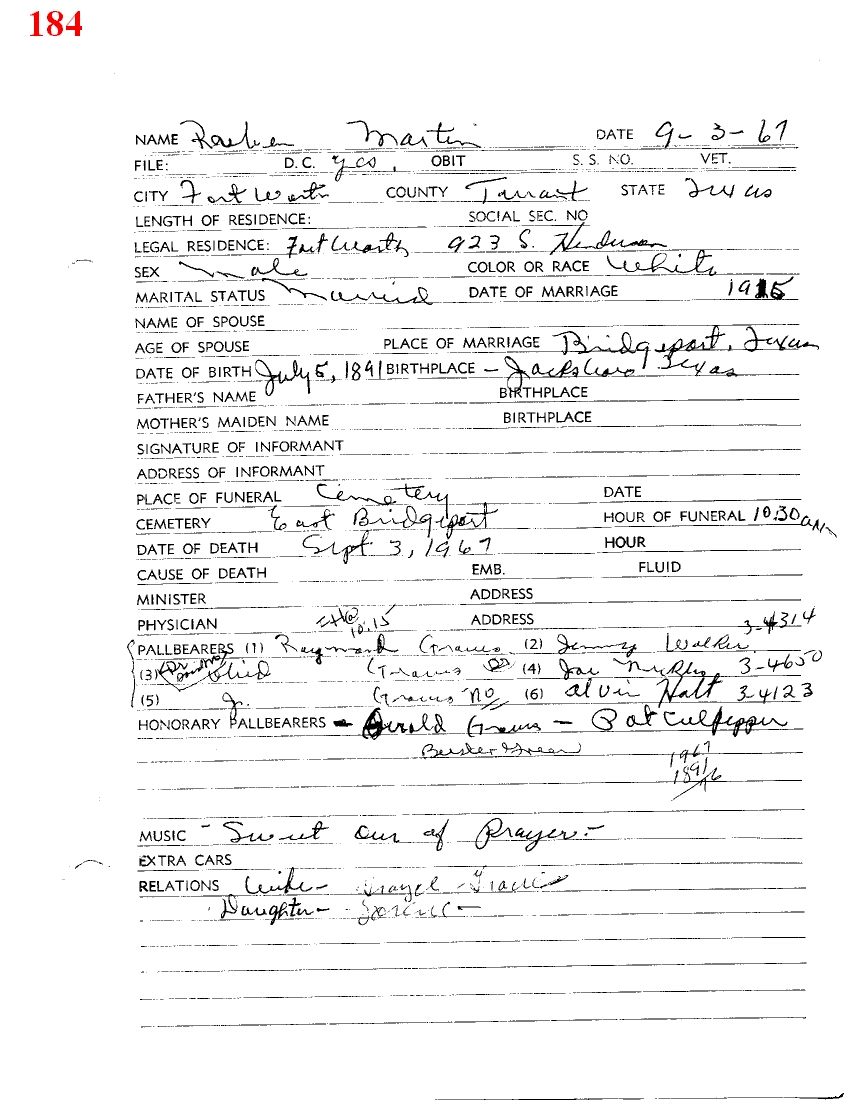 184
NAME Martin DATE 9-3-67
FILE: D.C. yes, OBIT S. S. NO. VET.
CITY Fort Worth COUNTY Tarrant STATE Texas
LENGTH OF RESIDENCE: SOCIAL SEC. NO
LEGAL RESIDENCE: Fort Worth 923 S. Henderson
SEX male COLOR OR RACE White
MARITAL STATUS Married DATE OF MARRIAGE 1915
NAME OF SPOUSE
AGE OF SPOUSE PLACE OF MARRIAGE Bridgeport, Texas
DATE OF BIRTH July 5, 1891 BIRTHPLACE - Jacksboro Texas
FATHER'S NAME BIRTHPLACE
MOTHER'S MAIDEN NAME BIRTHPLACE
SIGNATURE OF INFORMANT
ADDRESS OF INFORMANT
PLACE OF FUNERAL Cemetery DATE
CEMETERY East Bridgeport HOUR OF FUNERAL 10:30 am
DATE OF DEATH Sept 3, 1967 HOUR
CAUSE OF DEATH EMB. FLUID
MINISTER ADDRESS
PHYSICIAN 10:15 ADDRESS 3-4314
PALLBEARERS (1) Raymond Graves (2) Jimmy Walker
(3) Graves (4) Joe 3-4650
(5) Jr. Graves no (6) Alvin Halt 3-4123
HONORARY PALLBEARERS - Gerald Graves - Pat Culpepper
Buster Green 1967
1891
76
MUSIC - Sweet Our of Prayer -
EXTRA CARS
RELATIONS Wife - Graves
Daughter -